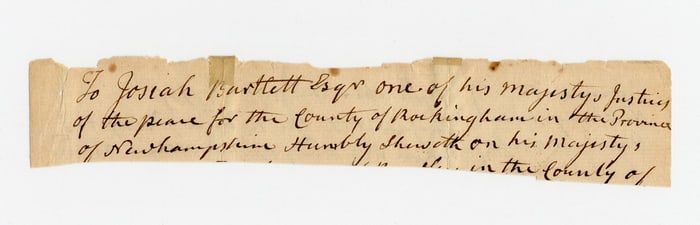 To Josiah Bartlett Esqr one of his majestys Justices
of the peace for the County of Rockingham in the Province
of Newhampshire Humbly Sheweth on his Majestys
in the County of